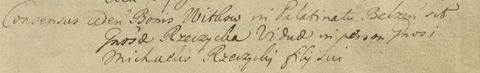 Consensus ceden Bonis Witkow in Palatinatu Belzen sub
Gnosæ Rzeczycka Viduæ in person Gnosi
Michaelis Rzeczycki filij sui